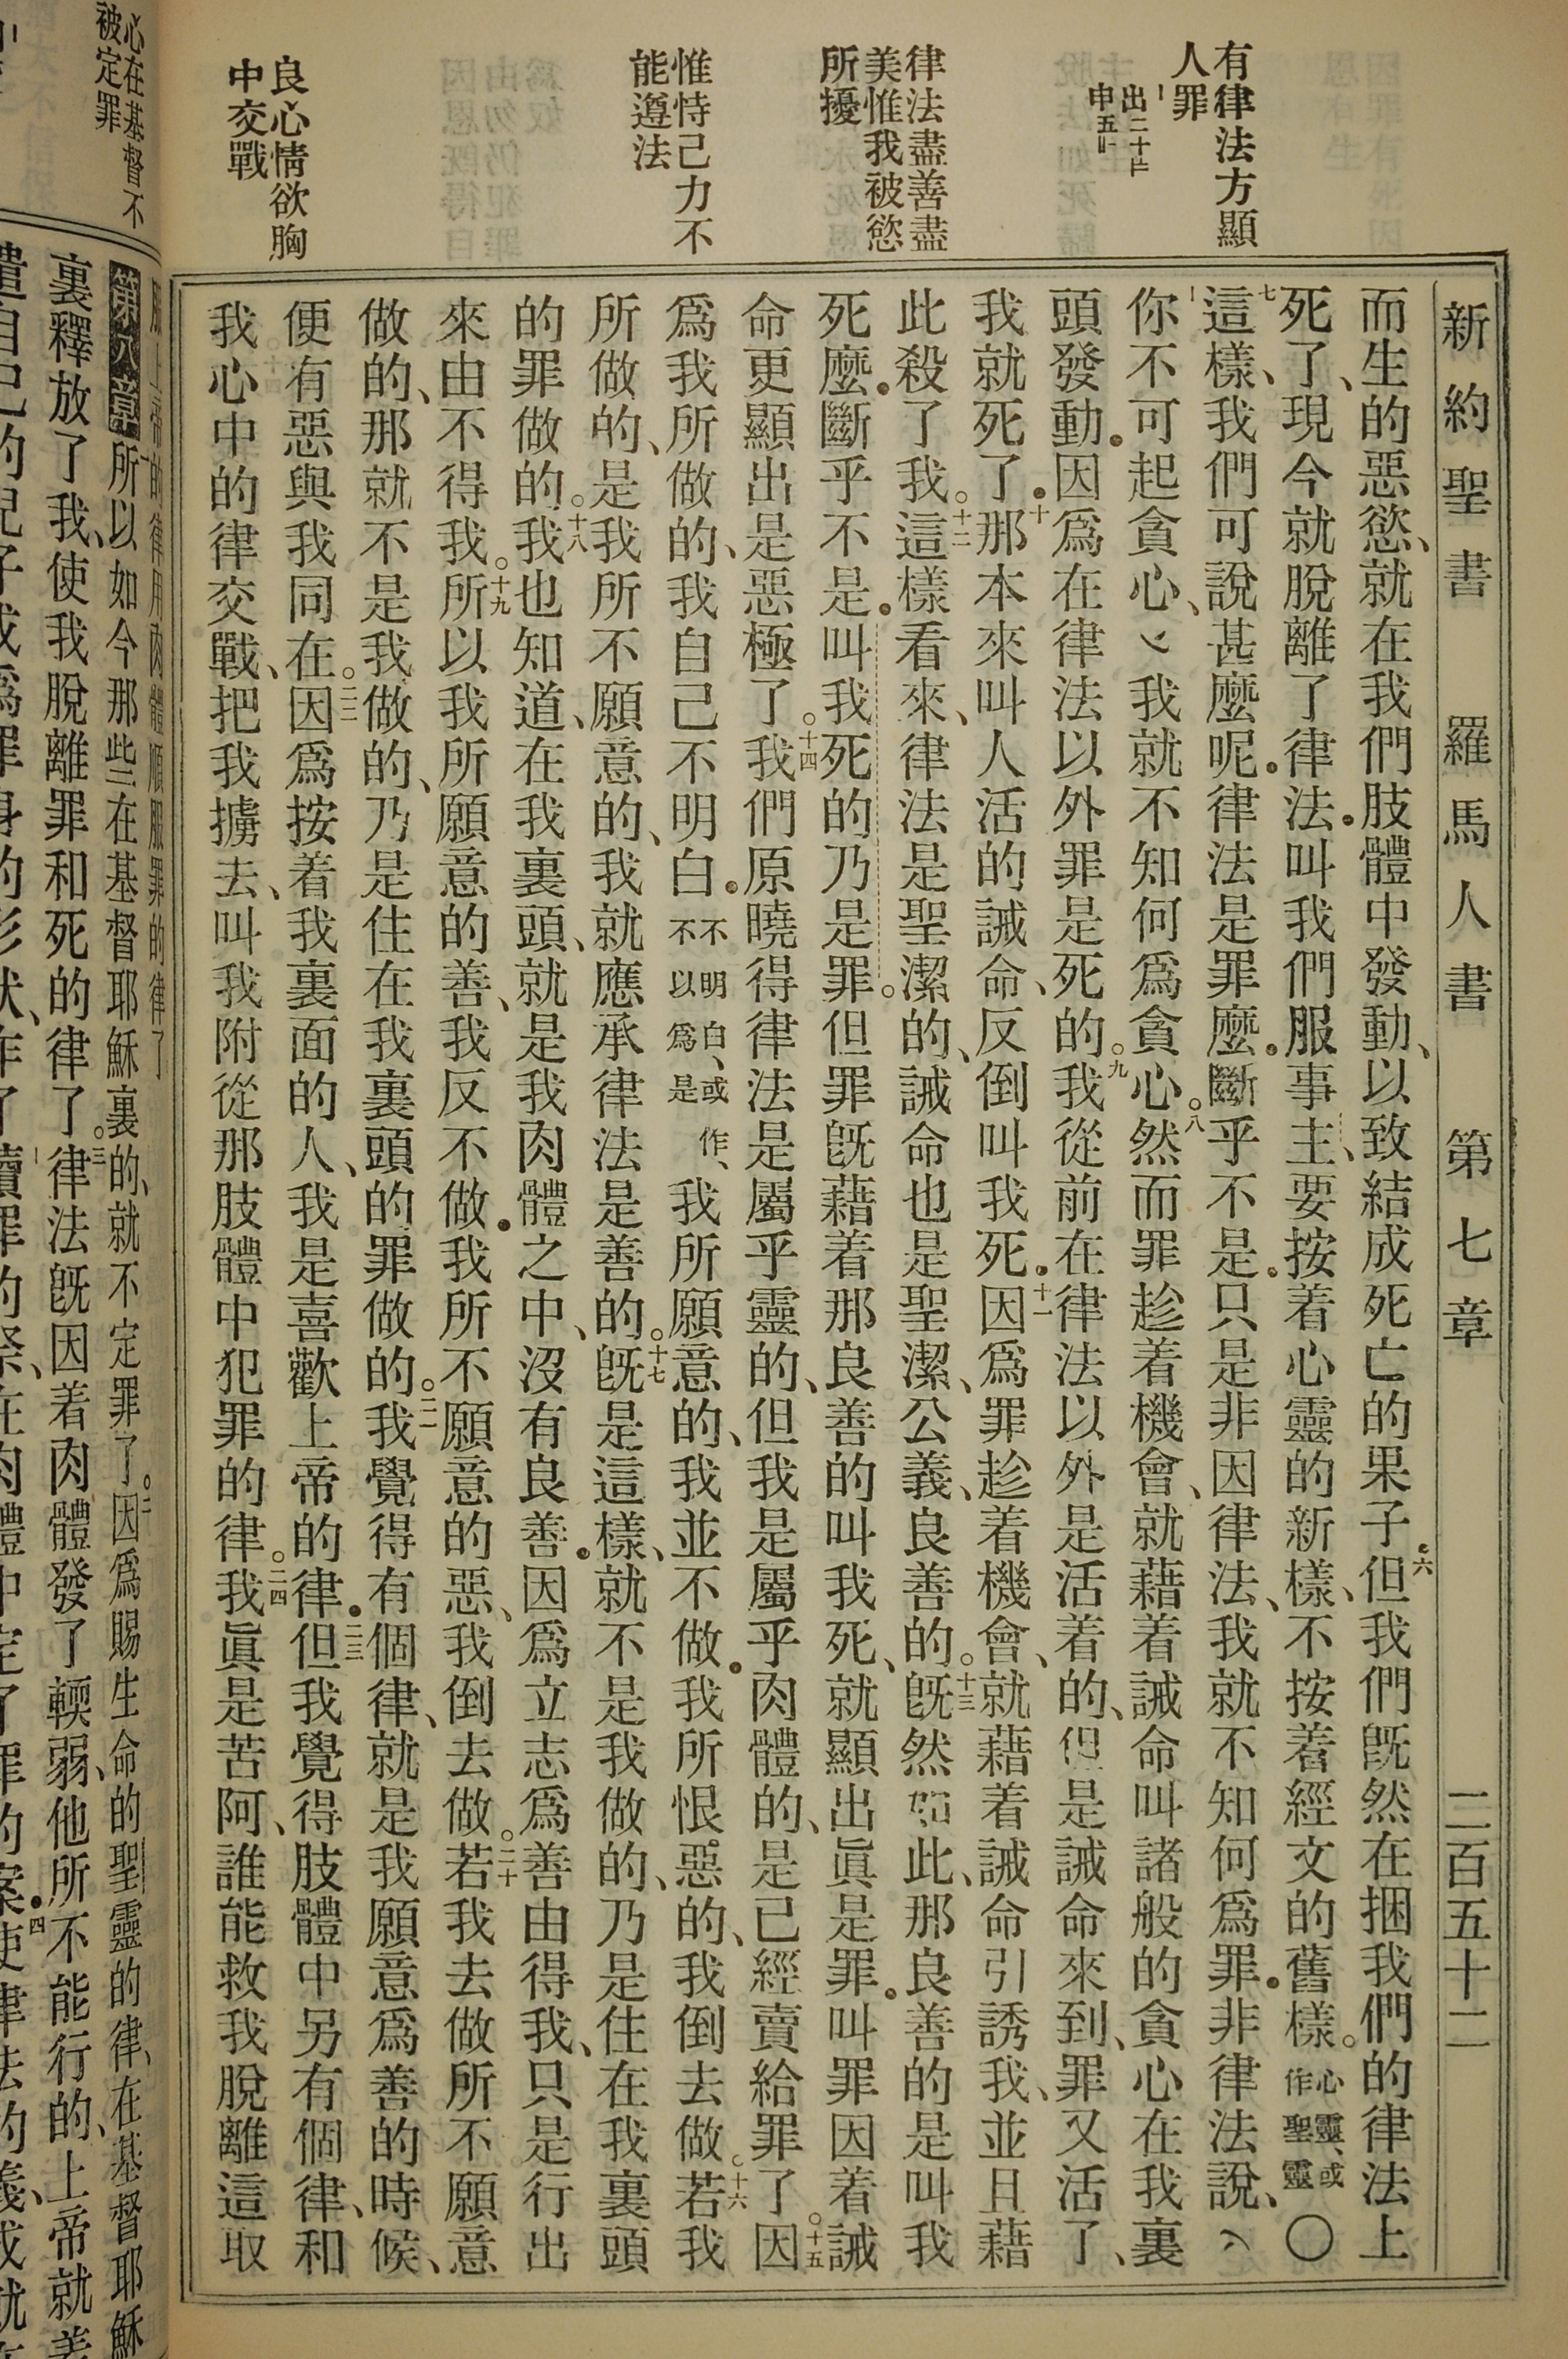 新約聖書 羅馬人書 第七章 二百五十二
有律法方顯
人罪
出二十
申五
律法盡善盡
美惟我被慾
所擾
惟恃己力不
能遵法
良心情欲胸
中交戰
而生的惡慾、就在我們肢體中發動、以致結成死亡的果子。六但我們旣然在捆我們的律法上
死了、現今就脫離了律法。叫我們服事主、要按着心靈的新樣、不按着經文的舊樣。心靈、或作聖靈〇
七這樣、我們可說甚麼呢。律法是罪麼。斷乎不是。只是非因律法、我就不知何爲罪。非律法說、
你不可起貪心、我就不知何爲貪心。八然而罪趁着機會、就藉着誡命叫諸般的貪心在我裏
頭發動。因爲在律法以外罪是死的。九我從前在律法以外是活着的、但是誡命來到、罪又活了、
我就死了。十那本來叫人活的誡命、反倒叫我死。十一因爲罪趁着機會、就藉着誡命引誘我、並且藉
此殺了我。十二這樣看來、律法是聖潔的、誡命也是聖潔、公義、良善的。十三旣然如此、那良善的是叫我
死麼。斷乎不是。叫我死的乃是罪。但罪旣藉着那良善的叫我死、就顯出眞是罪。叫罪因着誡
命更顯出是惡極了。十四我們原曉得律法是屬乎靈的、但我是屬乎肉體的、是已經賣給罪了。十五因
爲我所做的、我自己不明白。不明白、或作、不以爲是我所願意的、我並不做。我所恨惡的、我倒去做。十六若我
所做的、是我所不願意的、我就應承律法是善的。十七旣是這樣、就不是我做的、乃是住在我裏頭
的罪做的。十八我也知道、在我裏頭、就是我肉體之中、沒有良善。因爲立志爲善由得我、只是行出
來由不得我。十九所以我所願意的善、我反不做。我所不願意的惡、我倒去做。二十若我去做所不願意
做的、那就不是我做的、乃是住在我裏頭的罪做的。二一我覺得有個律、就是我願意爲善的時候、
便有惡與我同在。二二因爲按着我裏面的人、我是喜歡上帝的律。二三但我覺得肢體中另有個律、和
我心中的律交戰、把我擄去、叫我附從那肢體中犯罪的律。二四我眞是苦阿、誰能救我脫離這取
心在基督不
被定罪
服上帝的律用肉體順服罪的律了
第八章 所以如今那些在基督耶穌裏的、就不定罪了。二因爲賜生命的聖靈的律、在基督耶穌
裏釋放了我、使我脫離罪和死的律了。三律法旣因着肉體發了輭弱、他所不能行的、上帝就差